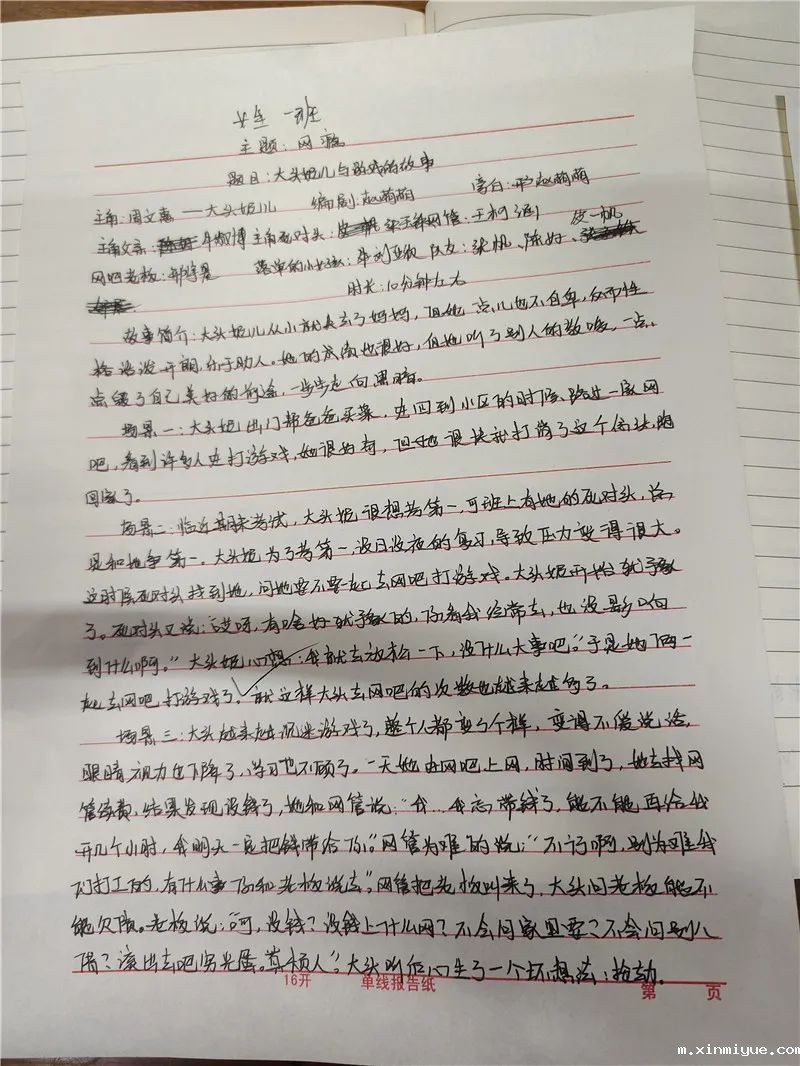 一班
主题：网瘾
题目：大头妞儿与游戏的故事
主角：周文嘉——大头妞儿 编剧：赵萌萌 旁白：赵萌萌
主角父亲：牛淑博 主角死对头： 网管：王柯 皮一帆
网吧老板： 落单的小女孩：刘亚 队友：张帆、陈好、
时长：10分钟左右
故事简介：大头妞儿从小就失去了妈妈，但她一点儿也不自卑，反而性
格活泼开朗，乐于助人。她的成绩也很好，但她听了别人的教唆，一点
点毁了自己美好的前途，一步步走向黑暗。
场景一：大头妞出门帮爸爸买菜，走回到小区的时候，路过一家网
吧，看到许多人在打游戏，她很好奇，但她很快就打消了这个念头，跑
回家了。
场景二：临近期末考试，大头妞很想考第一，可班上有她的死对头，总
是和她争第一。大头妞为了考第一，没日没夜的复习，导致压力变得很大。
这时候死对头找到她，问她要不要一起去网吧打游戏。大头妞开始就予豫
了。死对头又说：“哎呀，有啥好犹豫的，你看我经常去，也没影响
到什么啊。”大头妞心想：“我就去放松一下，没什么大事吧。”于是她们俩一
起去网吧打游戏了。就这样大头去网吧的次数也越来越多了。
场景三：大头越来越沉迷游戏了，整个人都变了个样，变得不爱说话，
眼睛视力也下降了，学习也不顾了。一天她由网吧上网，时间到了，她去找网
管续费，结果发现没钱了，她和网管说：“我…我忘带钱了，能不能再给我
开几个小时，我明天一定把钱带给你。”网管为难的说：“不行啊，别为难我
们打工的，有什么事你和老板说去。”网管把老板叫来了，大头问老板能不
能欠账。老板说：“呵，没钱？没钱上什么网？不会问家里要？不会问别人
借？滚出去吧穷光蛋。真烦人”。大头听后心生了一个坏想法：抢劫。
16开 单线报告纸 第 页
m.xinmiyue.com